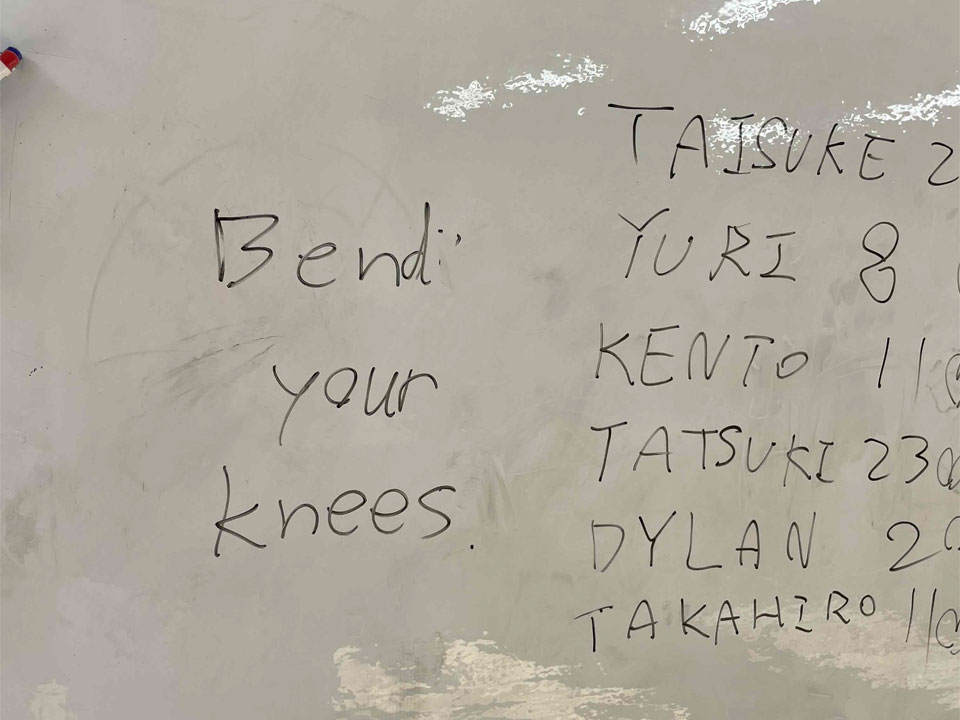 Bend
your
knees.
TAISUKE 2
YURI 8
KENTO 11
TATSUKI 23
DYLAN 2
TAKAHIRO 11